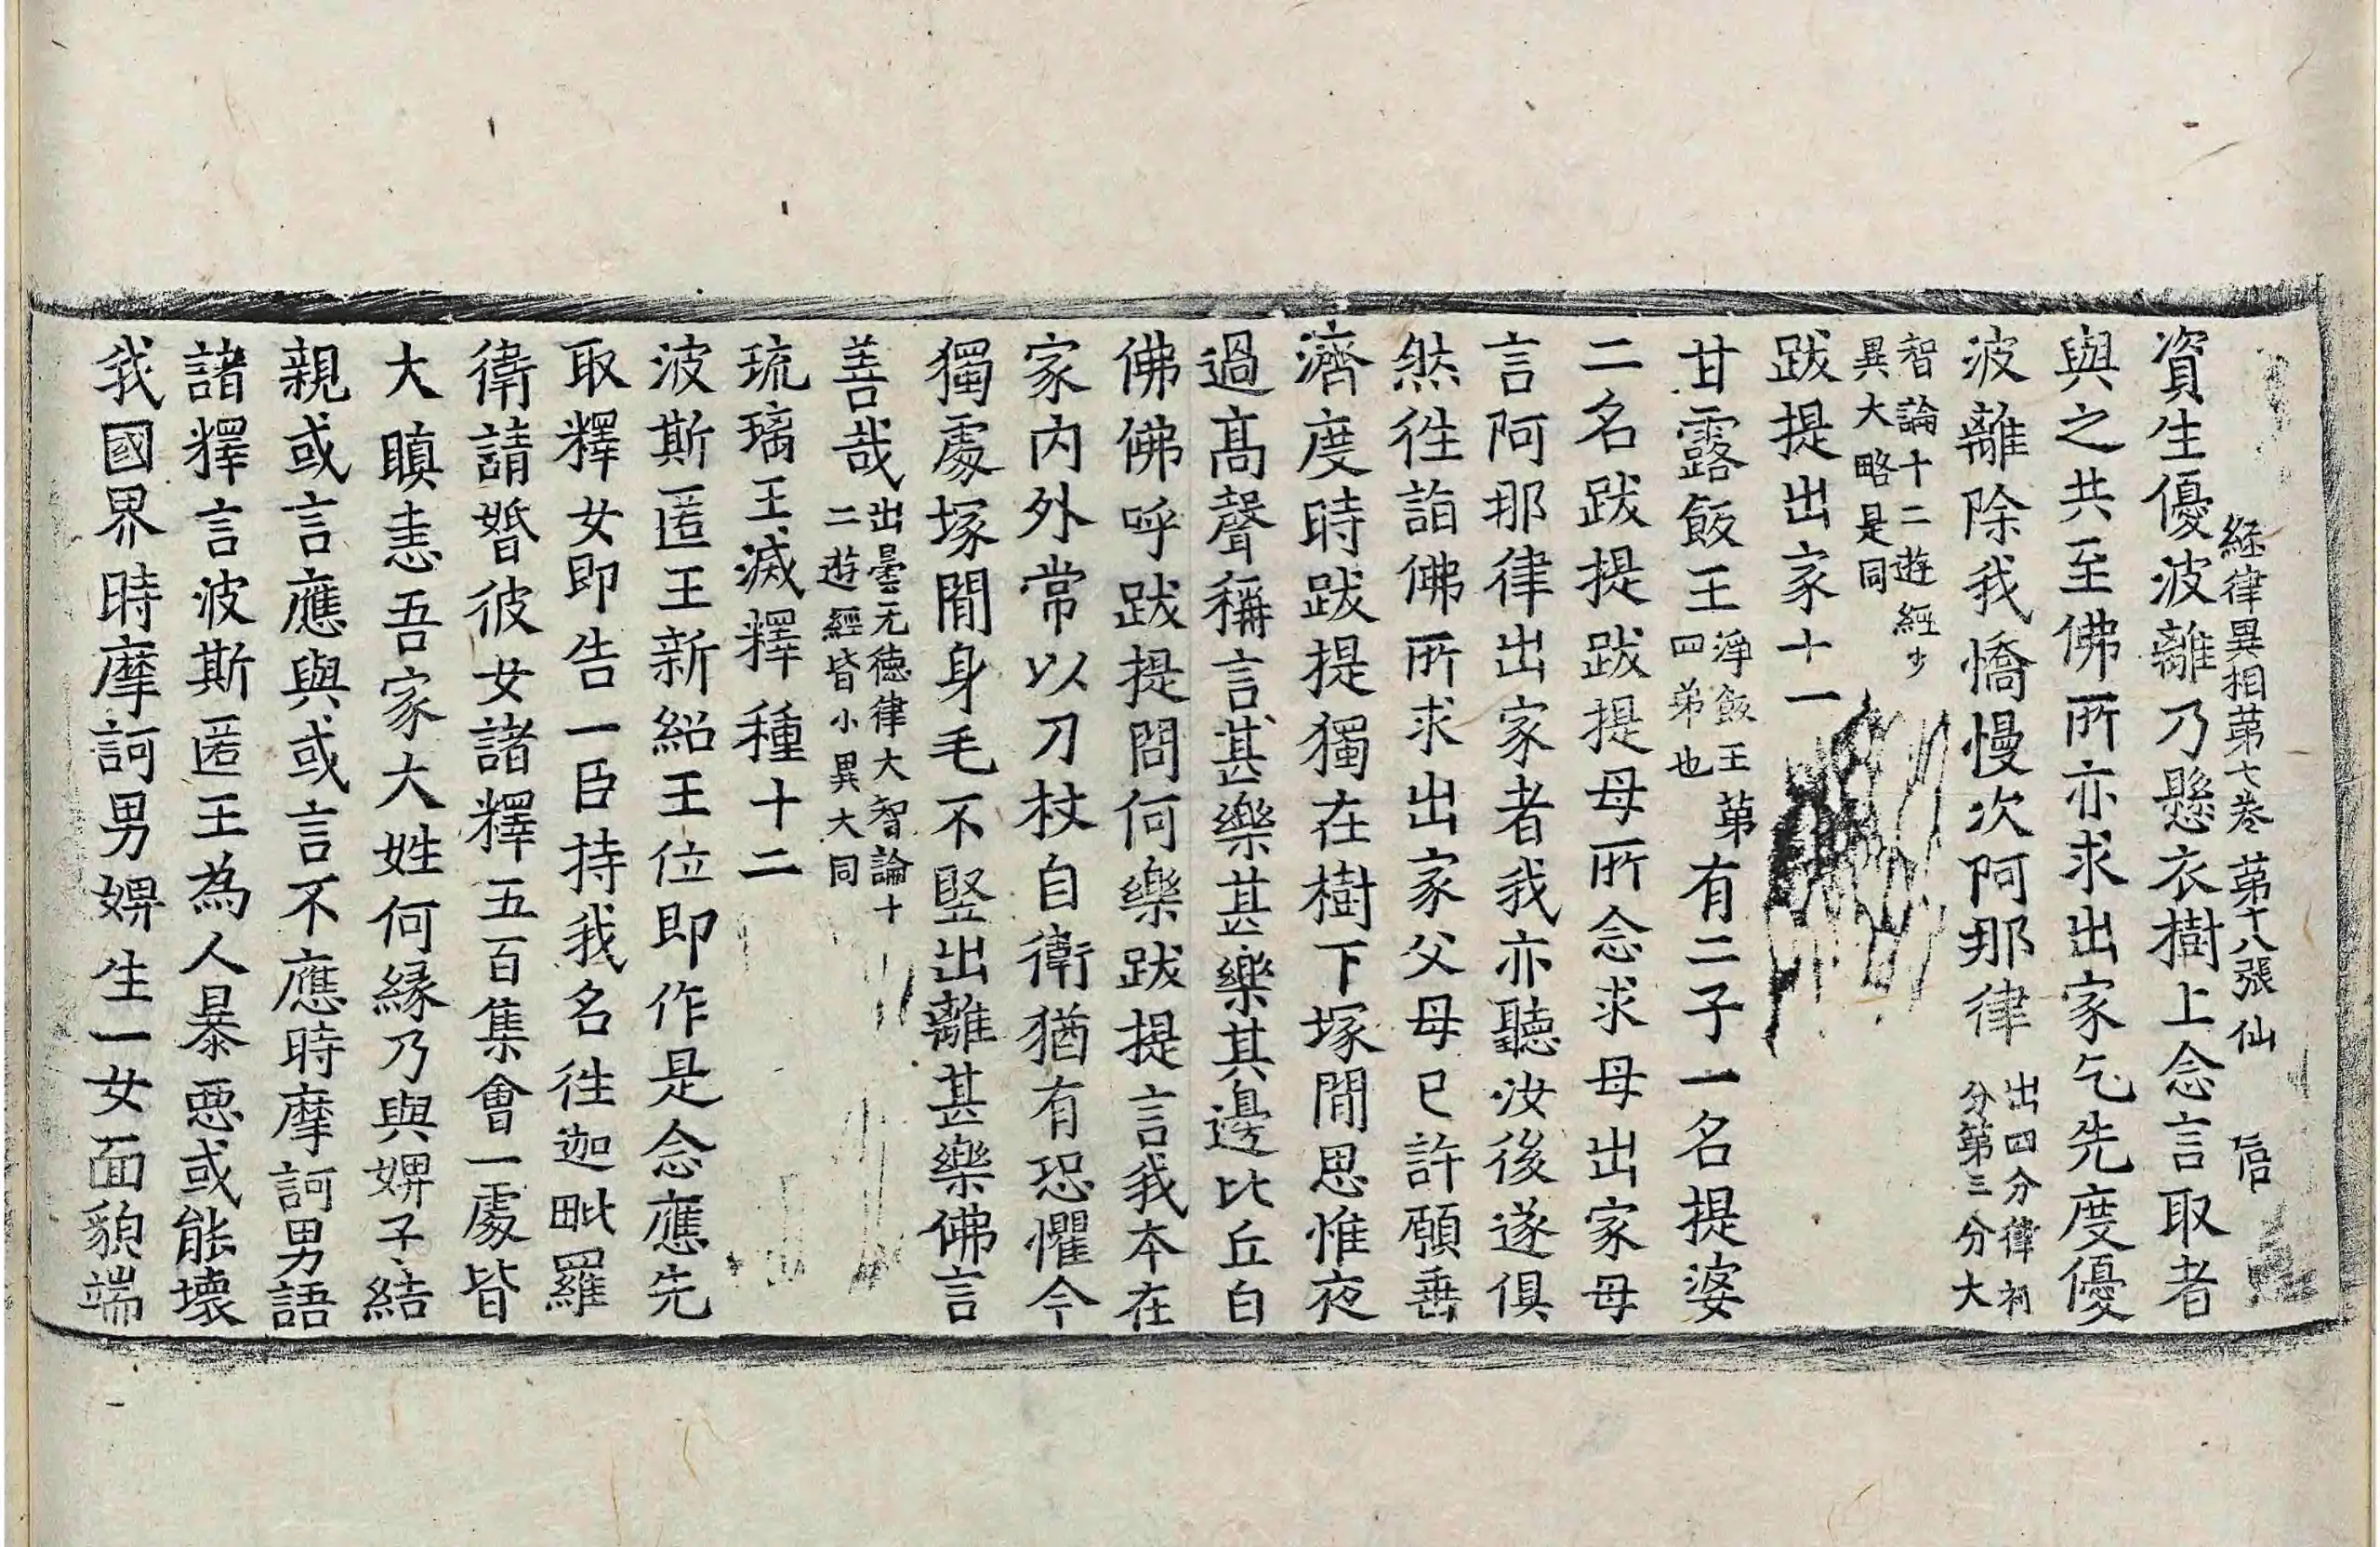 經律異相第七卷 第十八張 仙
資生優波離乃懸衣樹上念言取者
與之共至佛所亦求出家乞先度優
波離除我憍慢次阿那律出四分律初
分第三分大
智論十二遊經少
異大略是同
跋提出家十一
甘露飯王淨飯王第
四弟也有二子一名提婆
二名跋提跋提母所念求母出家母
言阿那律出家者我亦聽汝後遂俱
然往詣佛所求出家父母已許願垂
濟度時跋提獨在樹下塚間思惟夜
過高聲稱言甚樂甚樂其邊比丘白
佛佛呼跋提問何樂跋提言我本在
家內外常以刀杖自衛猶有恐懼今
獨處塚間身毛不竪出離甚樂佛言
善哉出曇无德律大智論十
二遊經皆小異大同
琉璃王滅釋種十二
波斯匿王新紹王位即作是念應先
取釋女即告一臣持我名往迦毗羅
衛請婚彼女諸釋五百集會一處皆
大瞋恚吾家大姓何緣乃與婢子結
親或言應與或言不應時摩訶男語
諸釋言波斯匿王為人暴惡或能壞
我國界時摩訶男婢生一女面貌端